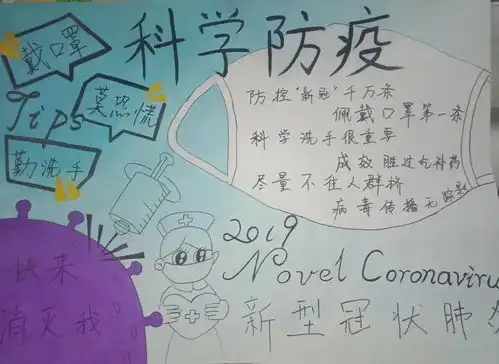 科学防疫
戴口罩
莫恐慌
Tips
勤洗手
防控"新冠"千万条
佩戴口罩第一条
科学洗手很重要
成效胜过吃补药
尽量不往人群挤
病毒传播无踪影
2019
Novel Coronaviru
新型冠状肺
快来
消灭我